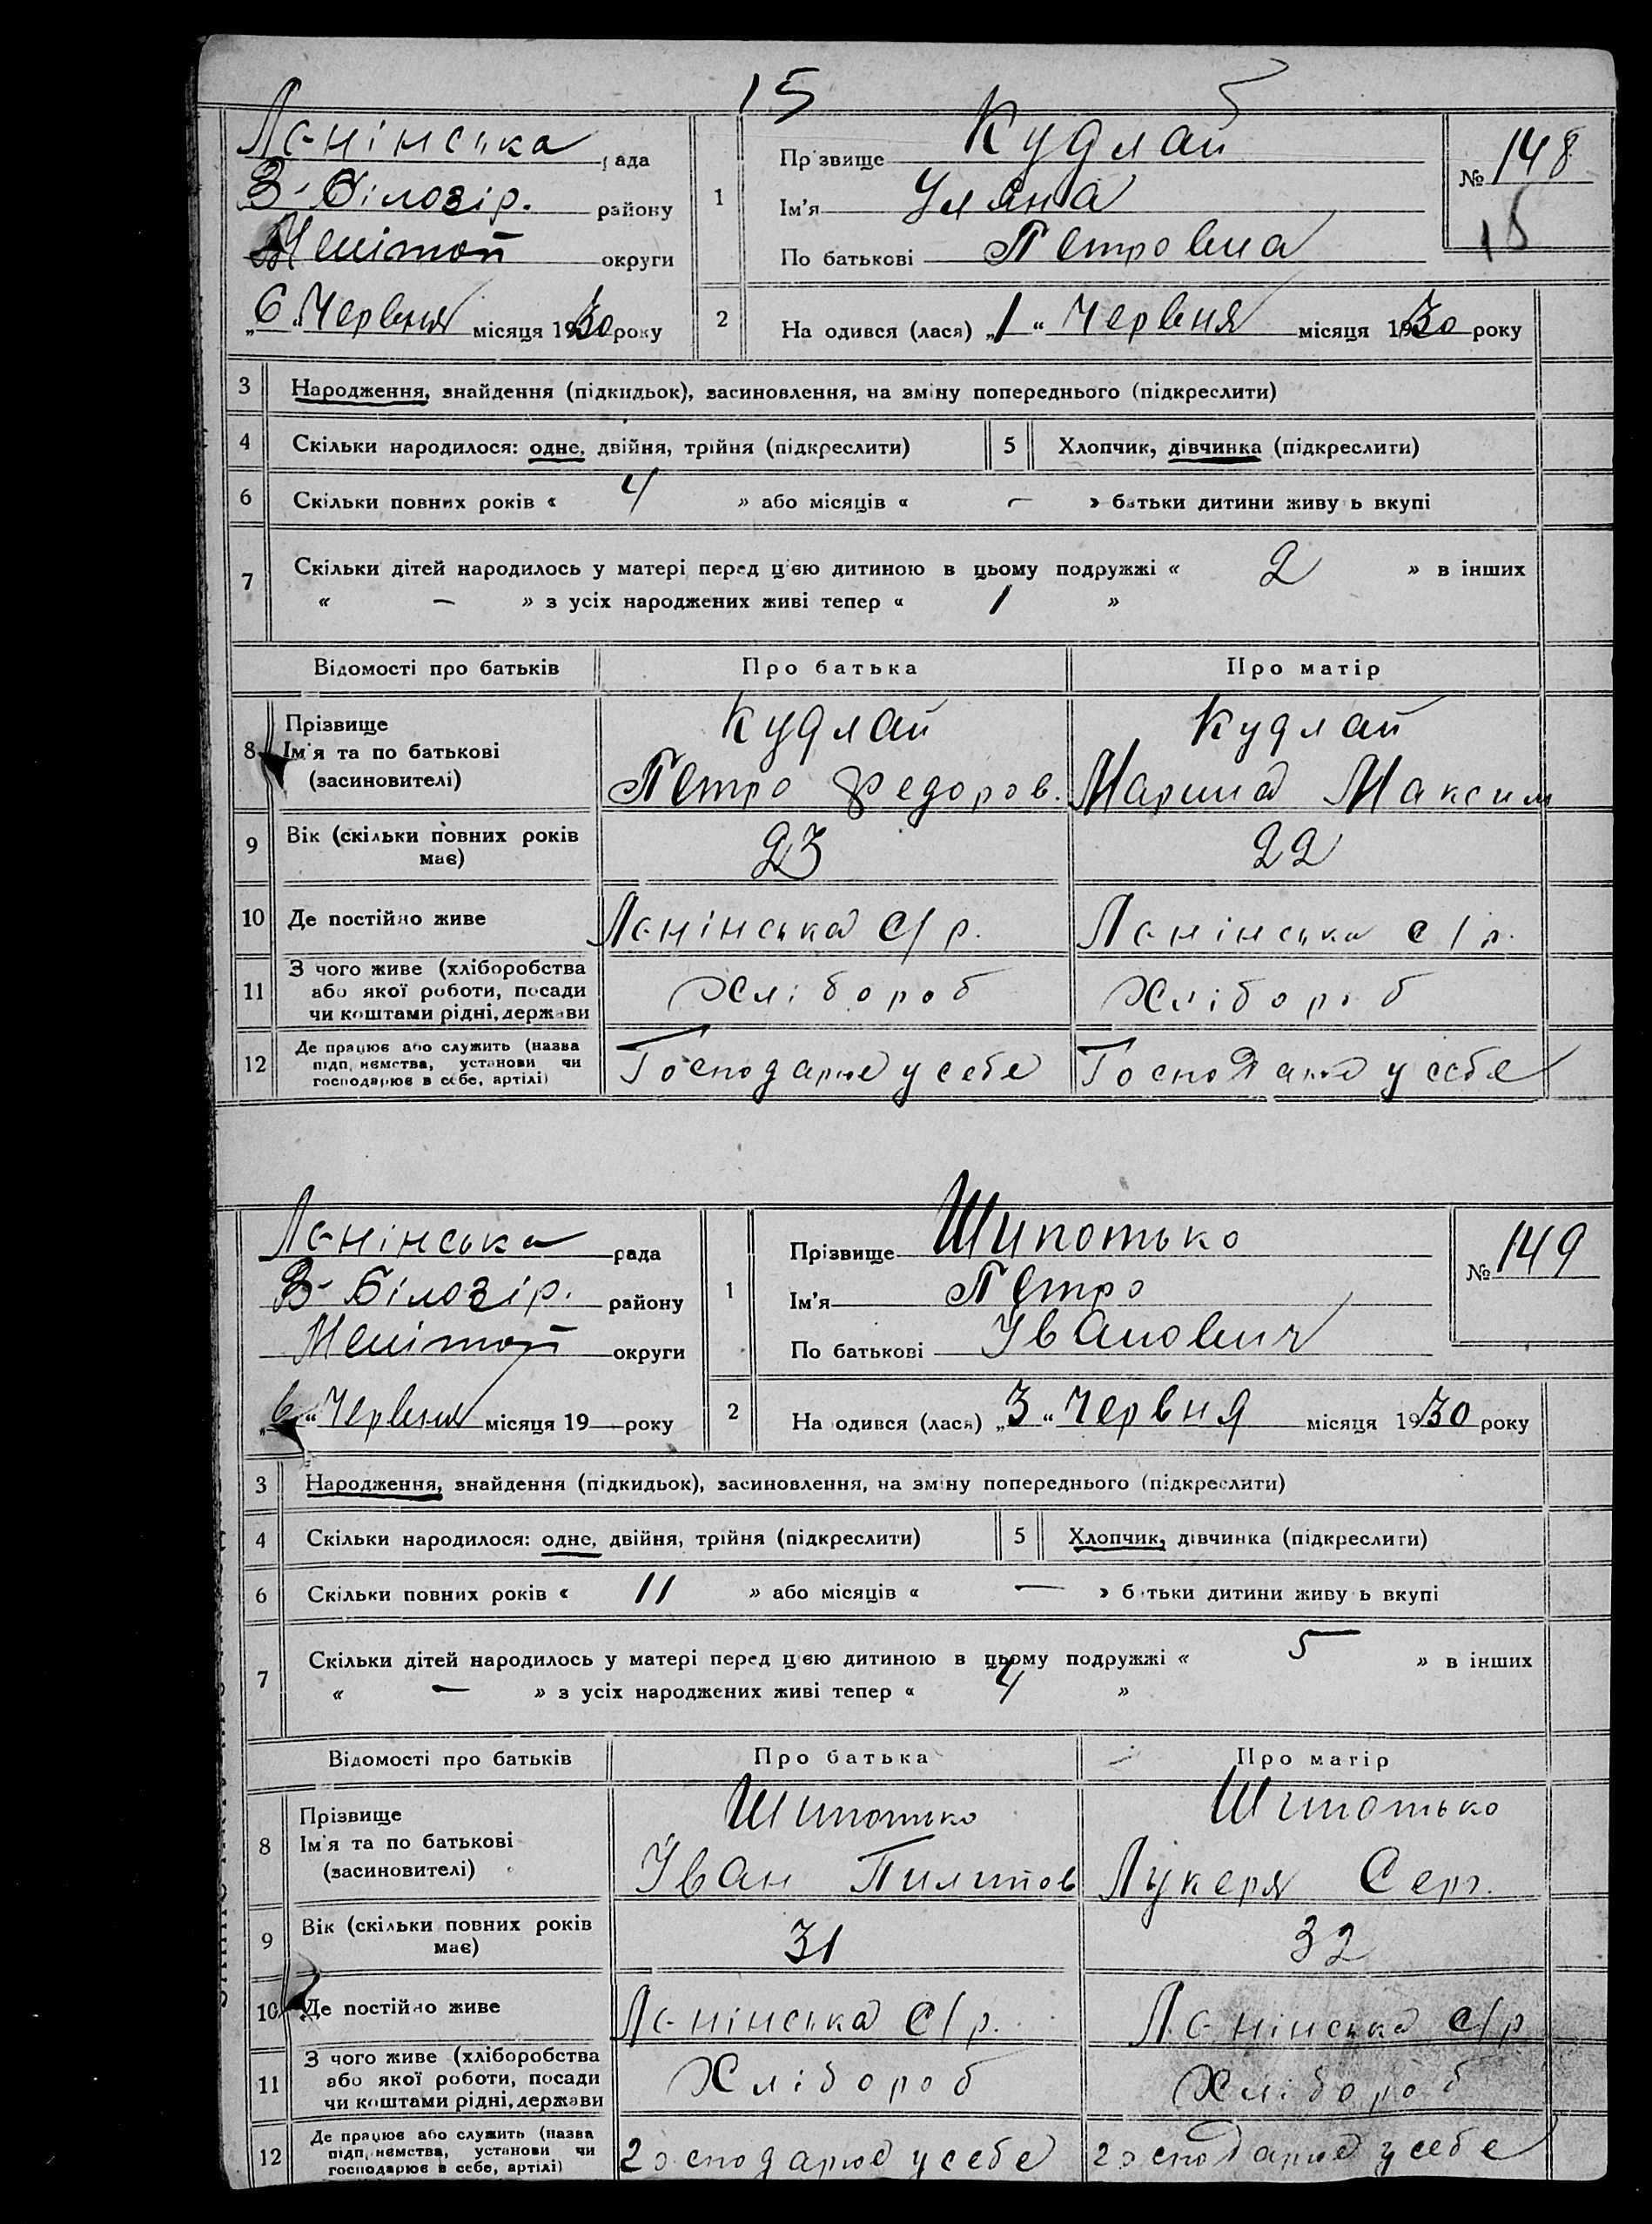 15
Лєнінська рада
Прізвище Кудлай
№ 148
В-Білозір. району
1
Ім'я Уляна
15
Меліtoп округи
По батькові Петровна
„6" Червня місяця 1930 року
2
На одився (лася) „1" Червня місяця 1930 року
3 Народження, знайдення (підкидьок), засиновлення, на зміну попереднього (підкреслити)
4 Скільки народилося: одне, двійня, трійня (підкреслити) 5 Хлопчик, дівчинка (підкреслити)
6 Скільки повних років « 4 » або місяців « – » батьки дитини живуть вкупі
7 Скільки дітей народилось у матері перед цією дитиною в цьому подружжі « 2 » в інших
« – » з усіх народжених живі тепер « 1 »
Відомості про батьків Про батька Про матір
8 Прізвище Ім'я та по батькові (засиновителі)
Кудлай Кудлай
Петро Федоров. Марина Максим
9 Вік (скільки повних років має) 23 22
10 Де постійно живе Лєнінська с/р. Лєнінська с/р.
11 З чого живе (хліборобства або якої роботи, посади чи коштами рідні, держави Хлібороб Хлібороб
12 Де працює або служить (назва підп, немства, установи чи господарює в себе, артілі) Господарює у себе Господарює у себе
Лєнінська рада
Прізвище Шипотько
№ 149
В-Білозір. району
1
Ім'я Петро
Меліtoп округи
По батькові Іванович
„6" Червня місяця 19— року
2
На одився (лася) „3" Червня місяця 1930 року
3 Народження, знайдення (підкидьок), засиновлення, на зміну попереднього (підкреслити)
4 Скільки народилося: одне, двійня, трійня (підкреслити) 5 Хлопчик, дівчинка (підкреслити)
6 Скільки повних років « 11 » або місяців « — » батьки дитини живуть вкупі
7 Скільки дітей народилось у матері перед цією дитиною в цьому подружжі « 5 » в інших
« — » з усіх народжених живі тепер « 4 »
Відомості про батьків Про батька Про матір
8 Прізвище Ім'я та по батькові (засиновителі)
Шипотько Шипотько
Іван Пилипов Лукеря Серг.
9 Вік (скільки повних років має) 31 32
10 Де постійно живе Лєнінська с/р. Лєнінська с/р
11 З чого живе (хліборобства або якої роботи, посади чи коштами рідні, держави Хлібороб Хлібороб
12 Де працює або служить (назва підп, немства, установи чи господарює в себе, артілі) господарює у себе господарює у себе